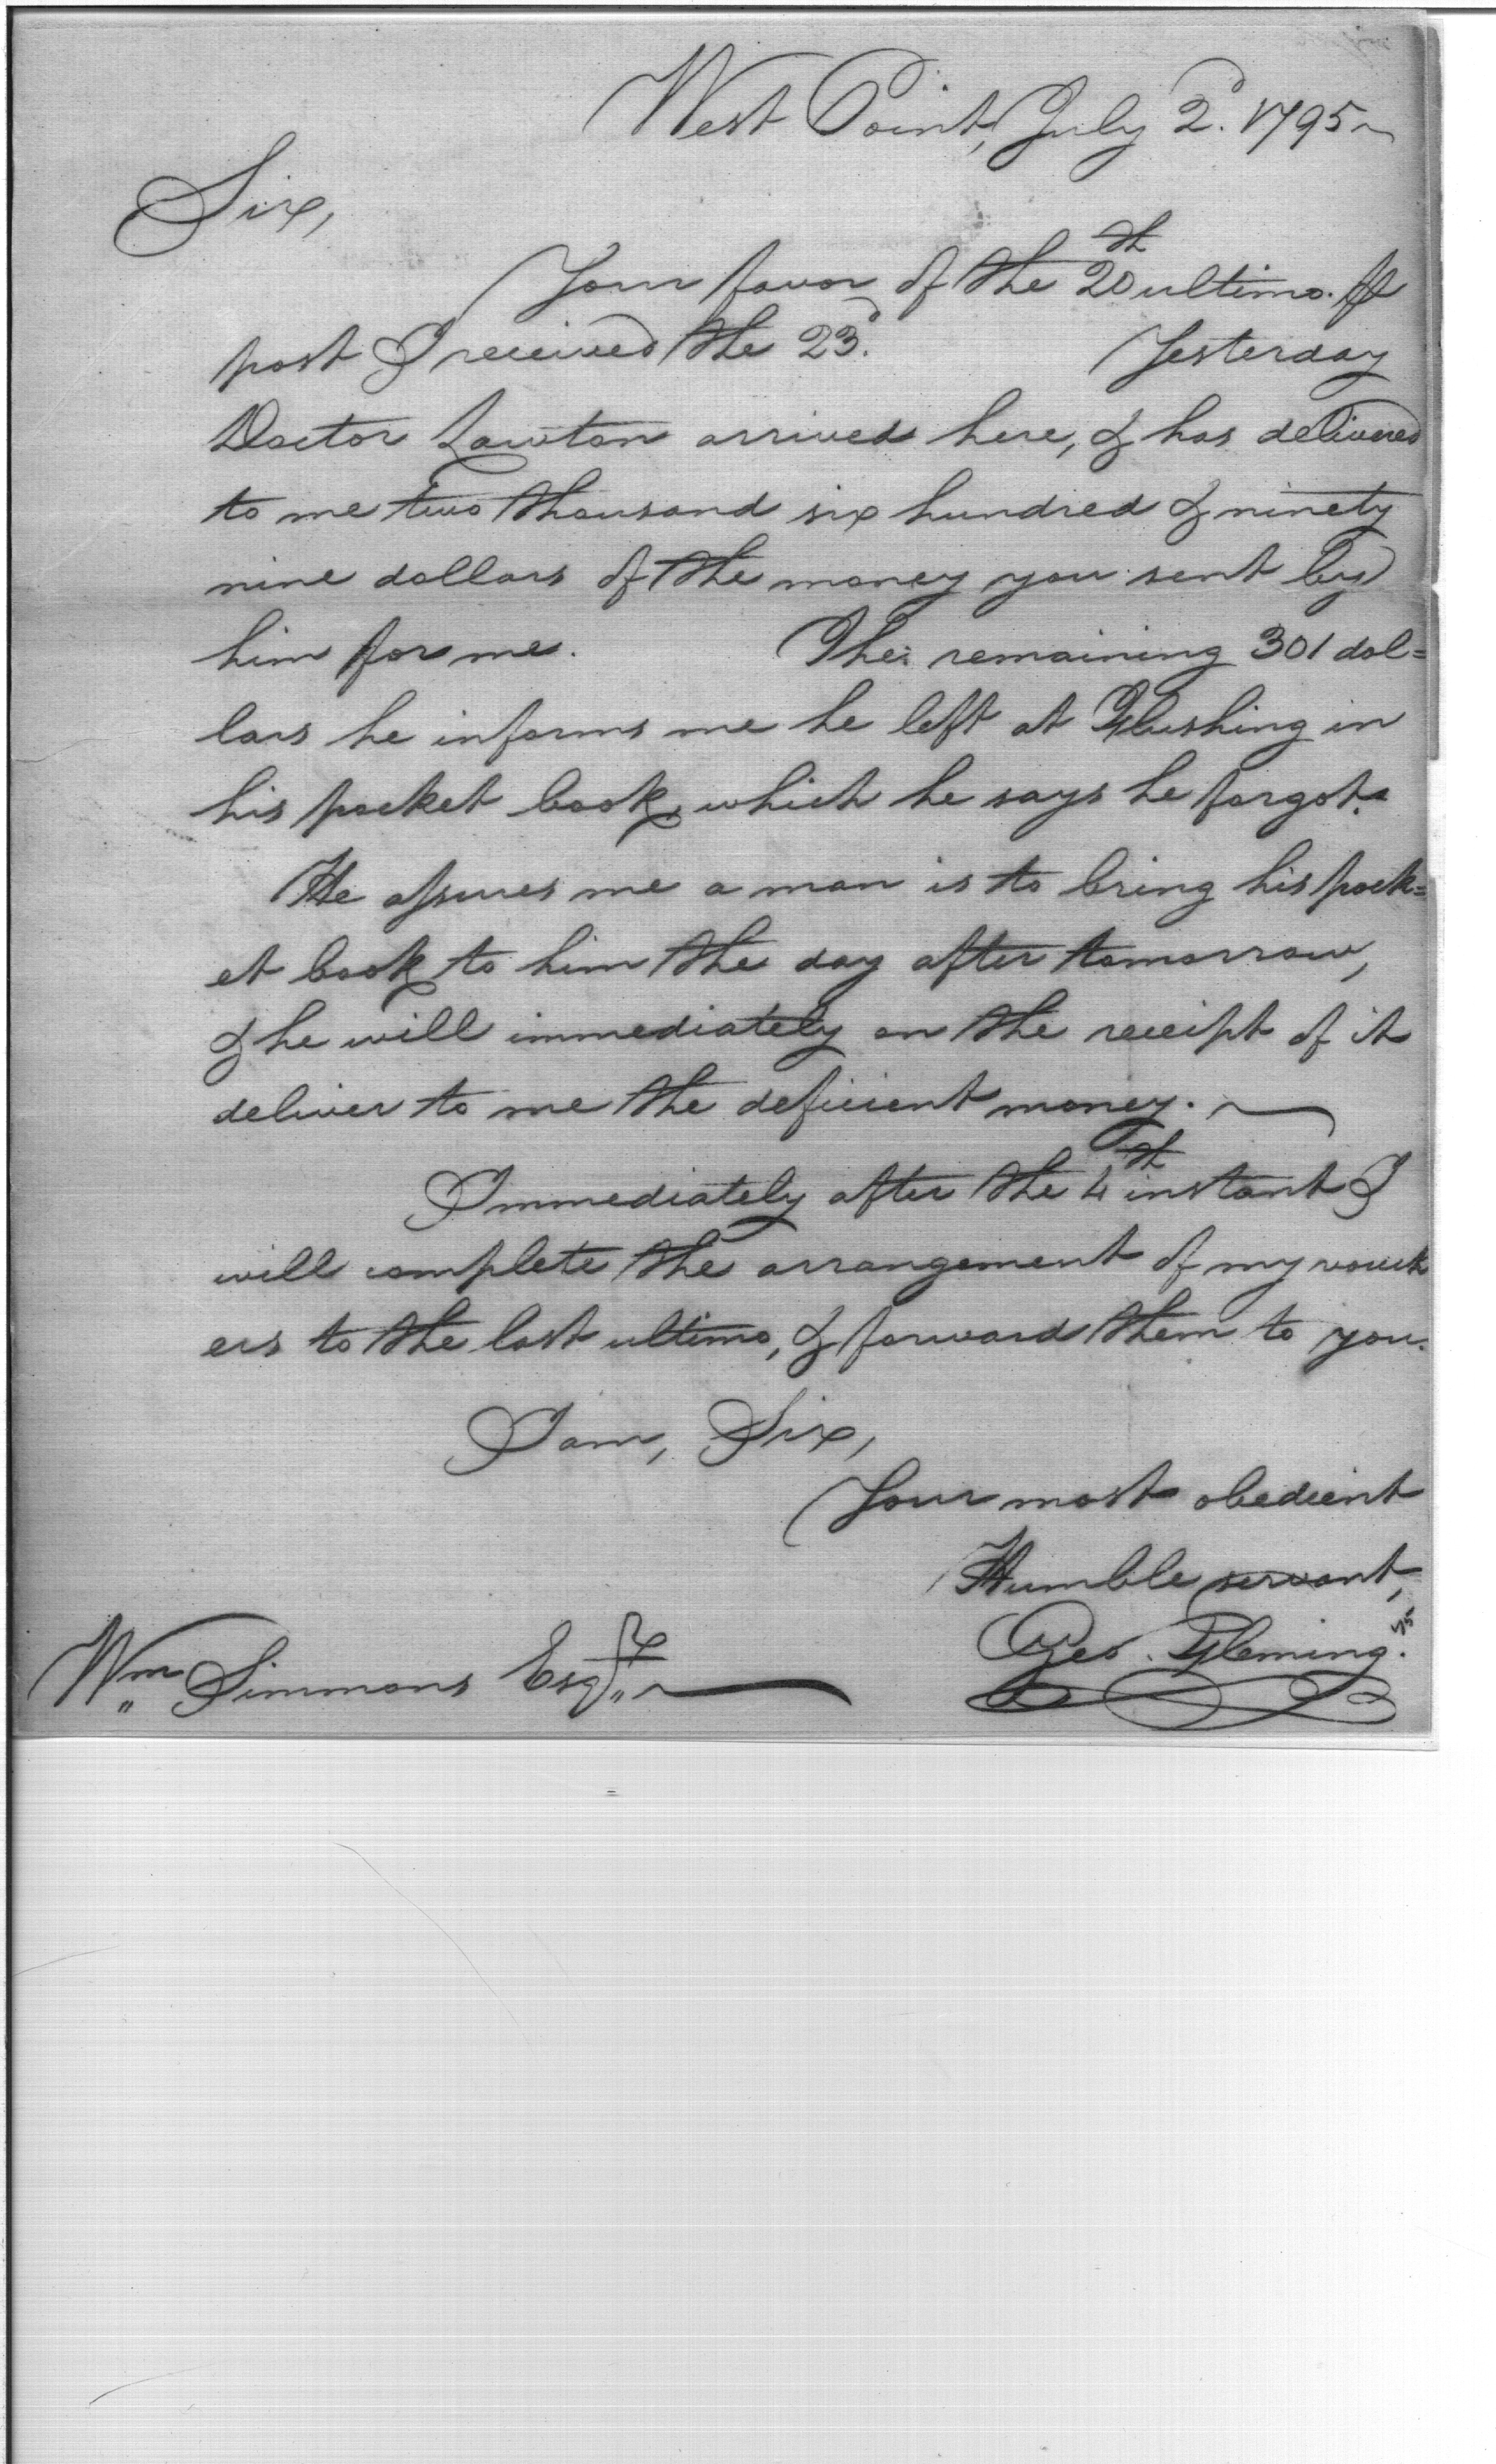 West Point, July 2d. 1795
Sir,
Your favor of the 20th ultimo. ⅌
post I received the 23d. Yesterday
Doctor Lawton arrived here, & has delivered
to me two thousand six hundred & ninety
nine dollars of the money you sent by
him for me. The remaining 301 dol=
lars he informs me he left at Flushing in
his pocket book, which he says he forgot.
He assures me a man is to bring his pock=
et book to him the day after tomorrow,
& he will immediately on the receipt of it
deliver to me the deficient money.
Immediately after the 4th instant I
will complete the arrangement of my vouch
ers to the last ultimo, & forward them to you.
I am, Sir,
Your most obedient
Humble servant,
Geo. Fleming.
Wm Simmons Esqr